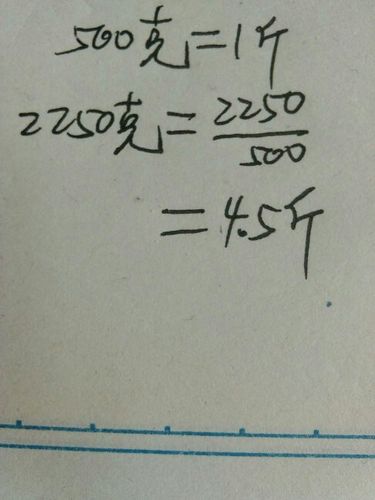 500克=1斤
2250克=2250/500
=4.5斤